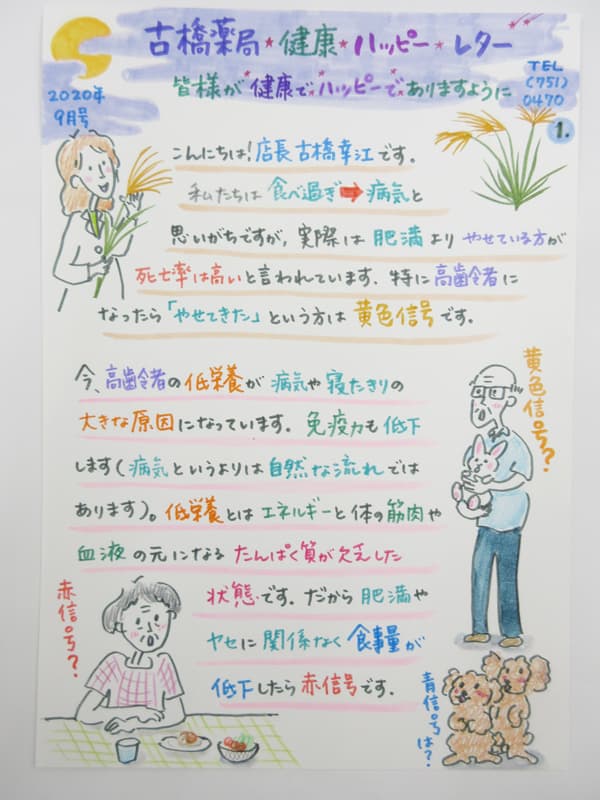 古橋薬局★健康★ハッピー★レター
皆様が健康でハッピーでありますように
2020年
9月号
TEL
(751)
0470
1.
こんにちは!店長古橋幸江です。
私たちは食べ過ぎ➡病気と
思いがちですが、実際は肥満よりやせている方が
死亡率は高いと言われています、特に高齢者に
なったら「やせてきた」という方は黄色信号です。
今、高齢者の低栄養が病気や寝たきりの
大きな原因になっています。免疫力も低下
します(病気というよりは自然な流れでは
あります)。低栄養とはエネルギーと体の筋肉や
血液の元になるたんぱく質が欠乏した
状態です。だから肥満や
ヤセに関係なく食事量が
低下したら赤信号です。
黄色信号?
赤信号?
青信号は?